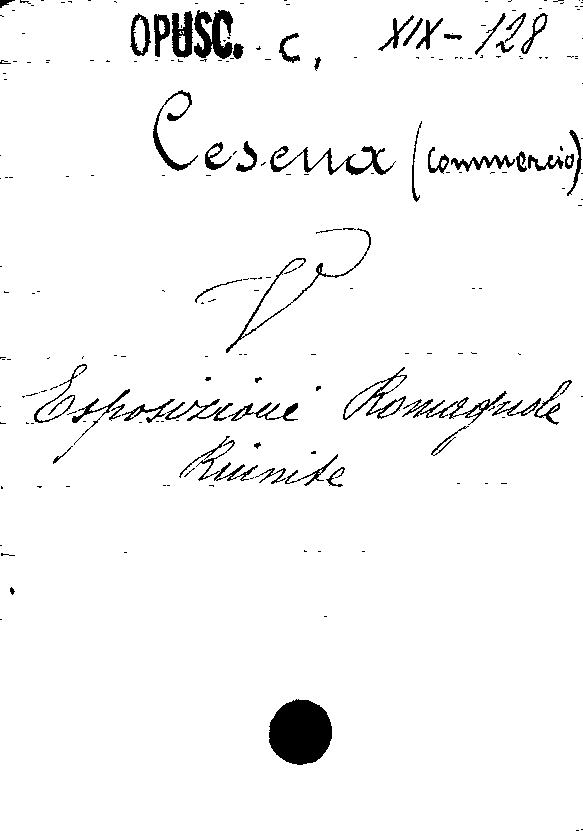 OPUSC. C, XIX-128
Cesena (commercio)
V
Esposizioni Romagnole
Riunite